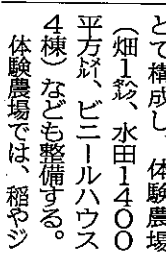 て構成し、体験農場
（畑1㌶、水田1400
平方㍍、ビニールハウス
4棟）なども整備する。
体験農場では、稲やジ